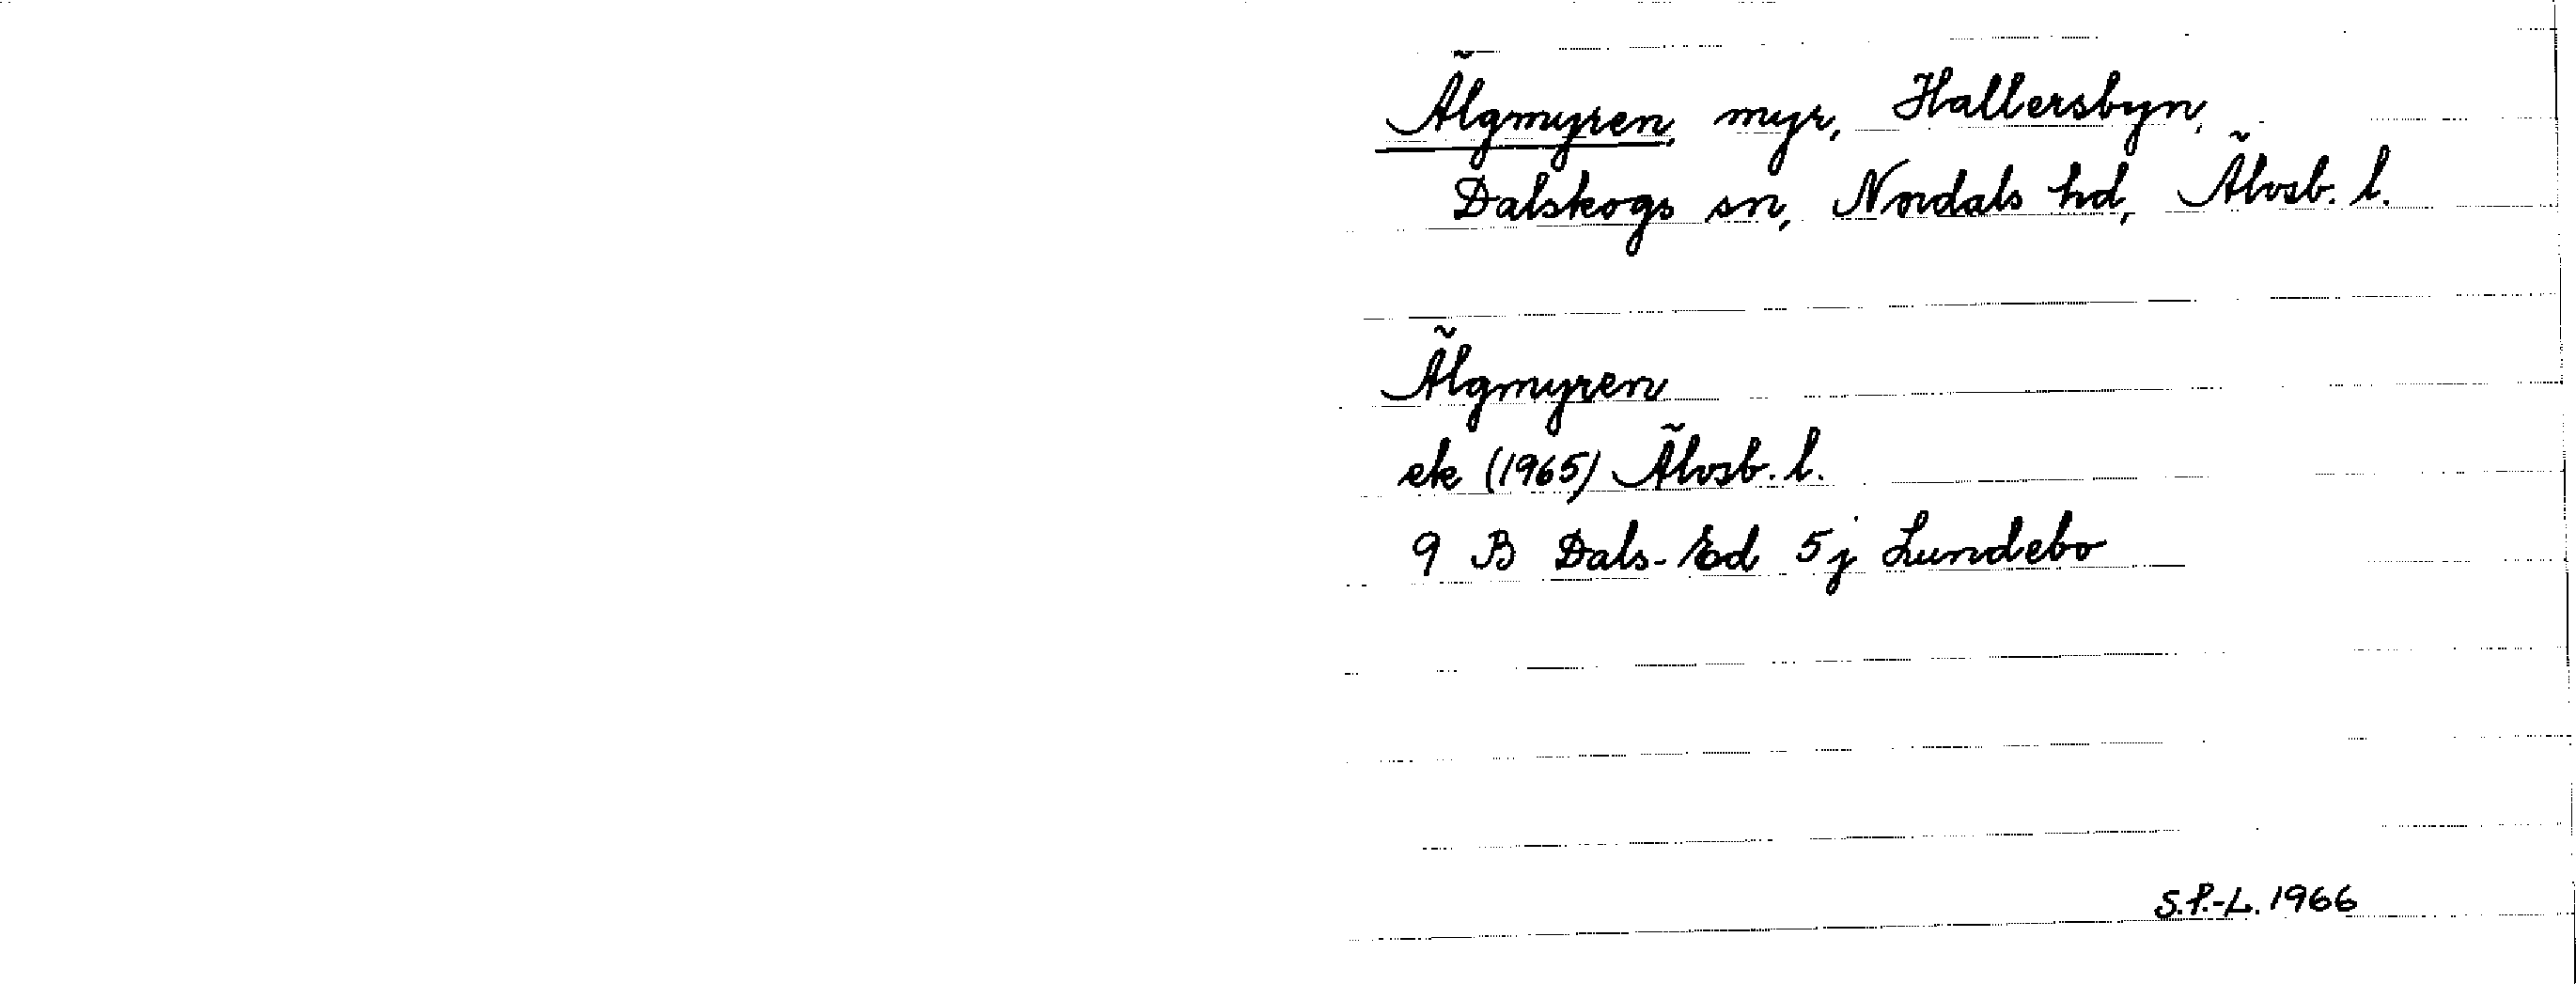 Älgmyren, myr, Hallersbyn,
Dalskogs sn, Nordals hd, Älvsb. l.
Älgmyren
ek (1965) Älvsb. l.
9 B Dals-Ed 5j Lundebo
S.P.-L. 1966